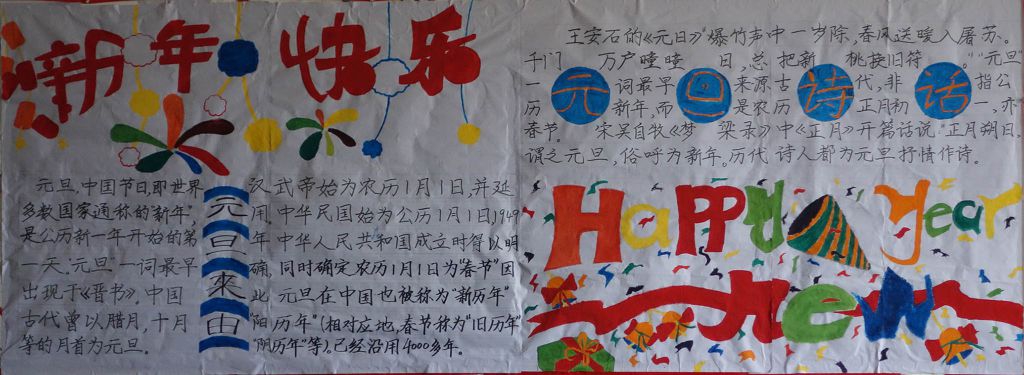 新年快乐
元旦，中国节日，即世界
多数国家通称的"新年"，
是公历新一年开始的第
一天。"元旦"一词最早
出现于《晋书》，中国
古代曾以腊月，十月
等的月首为元旦。
元旦来由
汉武帝始为农历1月1日，并延
用，中华民国始为公历1月1日，1949
年中华人民共和国成立时得以明
确，同时确定农历1月1日为"春节"因
此元旦在中国也被称为"新历年"
"阳历年"（相对应地，春节称为"旧历年"
"阴历年"等）。已经沿用4000多年。
王安石的《元日》"爆竹声中一岁除，春风送暖入屠苏。
千门万户曈曈日，总把新桃换旧符。""元旦"
一词最早来源古代，非指公
历新年，而是农历正月初一，亦
春节。宋吴自牧《梦粱录》中《正月》开篇话说"正月朔日，
谓之元旦，俗呼为新年。历代诗人都为元旦抒情作诗。
元旦诗话
Happy year
new